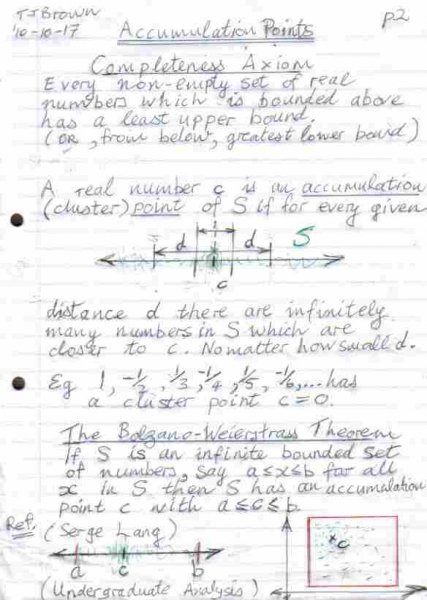 TJBrown
'16-10-17
Accumulation Points
p2
Completeness Axiom
Every non-empty set of real
numbers which is bounded above
has a least upper bound.
(OR, from below, greatest lower bound)
A real number c is an accumulation
(cluster) point of S if for every given
d d S
c
distance d there are infinitely
many numbers in S which are
closer to c. No matter how small d.
Eg 1, -1/2, 1/3, -1/4, 1/5, -1/6,... has
a cluster point c=0.
The Bolzano-Weierstrass Theorem
If S is an infinite bounded set
of numbers, say a≤x≤b for all
x in S then S has an accumulation
point c with a≤c≤b.
Ref. (Serge Lang)
a c b
c
(Undergraduate Analysis)